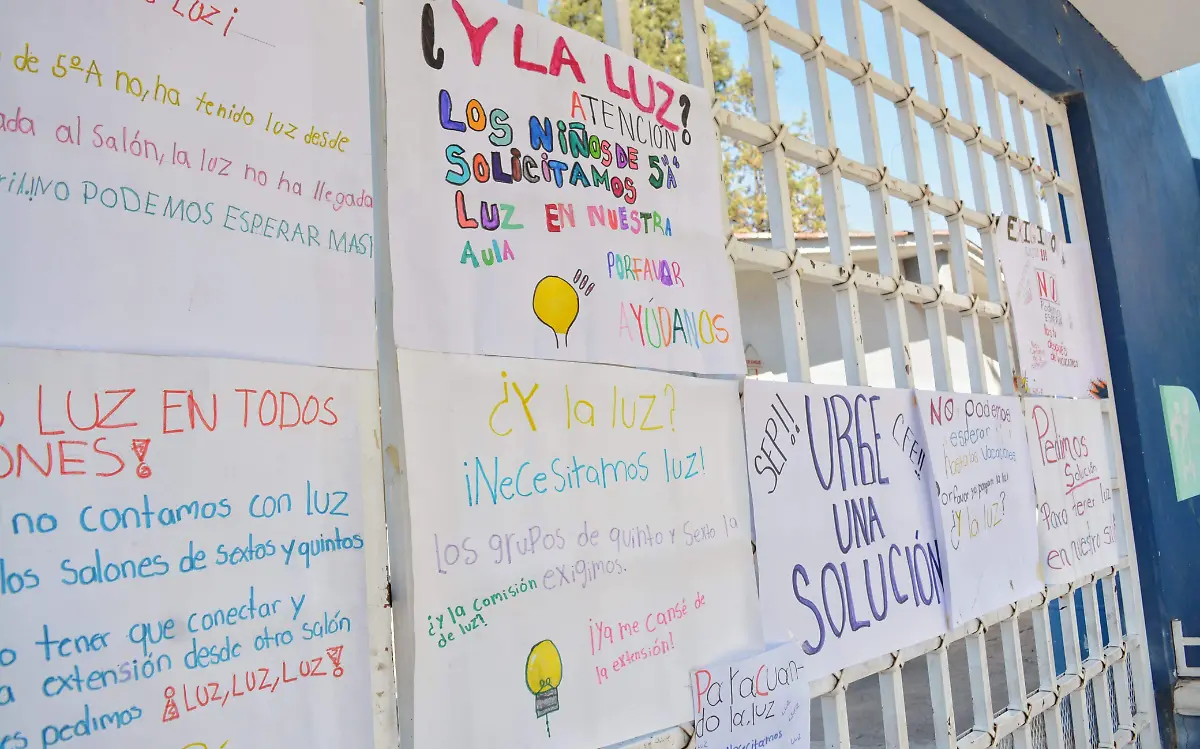 LUZ¡
de 5ºA no, ha tenido luz desde
al Salón, la luz no ha llegada
¡NO PODEMOS ESPERAR MAS!
¿Y LA LUZ?
ATENCIÓN
LOS NIÑOS DE 5ºA
SOLICITAMOS
LUZ EN NUESTRA
AulA
PORFAVOR
AYÚDANOS
LUZ EN TODOS
ONES!
no contamos con luz
los salones de sextos y quintos
tener que conectar y
extensión desde otro salón
pedimos ¡LUZ, LUZ, LUZ!
¿Y la luz?
¡Necesitamos luz!
los grupos de quinto y Sexto la
exigimos.
¿y la comisión
de luz!
¡Ya me cansé de
la extensión!
SEP!!
CFE!!
URGE
UNA
SOLUCIÓN
NO podemos
esperar
hasta las vacaciones
¿Y la luz?
Pedimos
Solución
Para tener luz
en nuestro
Para Cuan-
do la luz
Necesitamos
NO